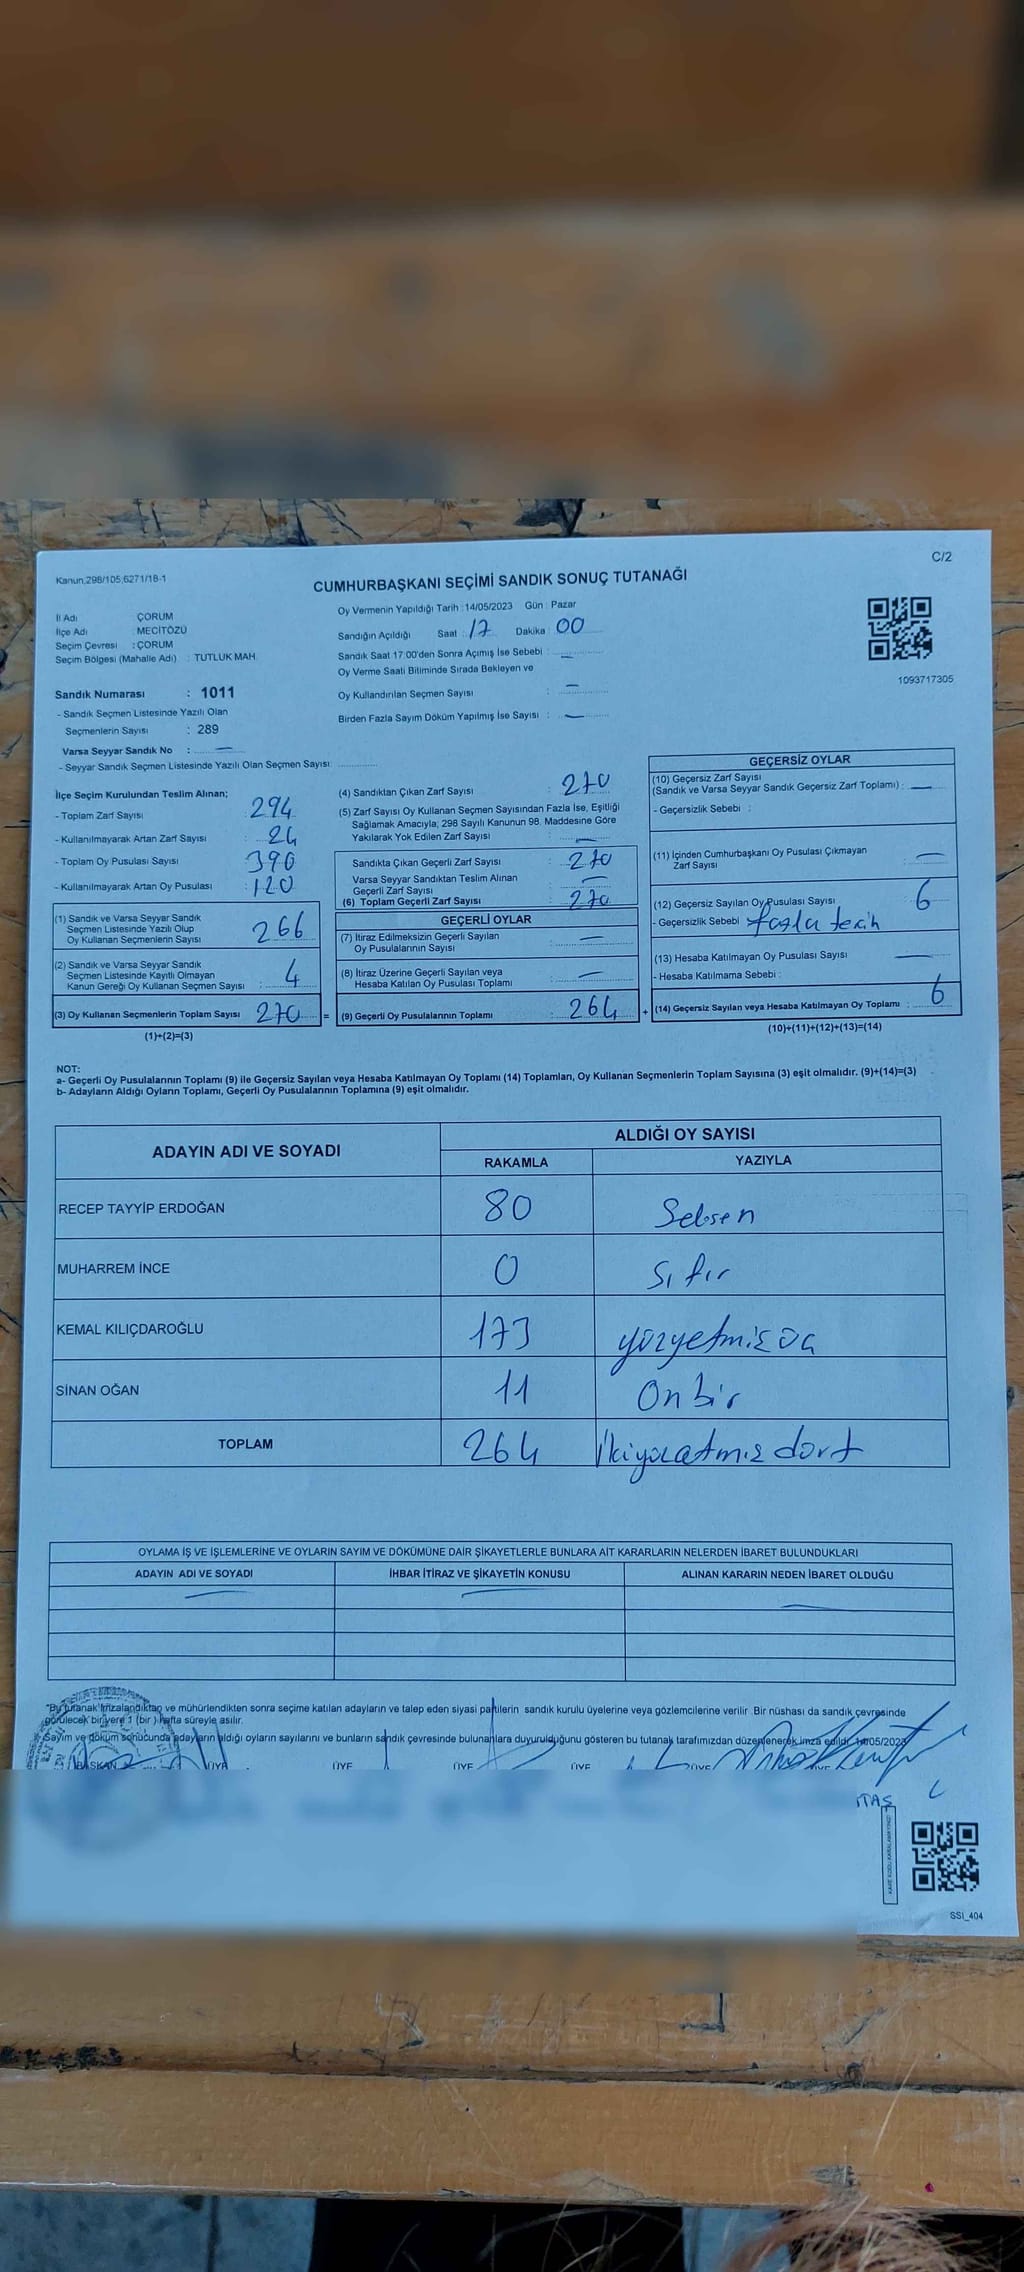 C/2
Kanun;298/105;6271/18-1
CUMHURBAŞKANI SEÇİMİ SANDIK SONUÇ TUTANAĞI
İl Adı : ÇORUM
İlçe Adı : MECİTÖZÜ
Seçim Çevresi : ÇORUM
Seçim Bölgesi (Mahalle Adı) : TUTLUK MAH.
Sandık Numarası : 1011
- Sandık Seçmen Listesinde Yazılı Olan
Seçmenlerin Sayısı : 289
Varsa Seyyar Sandık No : —
- Seyyar Sandık Seçmen Listesinde Yazılı Olan Seçmen Sayısı:
Oy Vermenin Yapıldığı Tarih : 14/05/2023 Gün : Pazar
Sandığın Açıldığı Saat : 17 Dakika : 00
Sandık Saat 17:00'den Sonra Açımış İse Sebebi : —
Oy Verme Saati Bitiminde Sırada Bekleyen ve
Oy Kullandırılan Seçmen Sayısı : —
Birden Fazla Sayım Döküm Yapılmış İse Sayısı : —
1093717305
İlçe Seçim Kurulundan Teslim Alınan;
- Toplam Zarf Sayısı : 294
- Kullanılmayarak Artan Zarf Sayısı : 24
- Toplam Oy Pusulası Sayısı : 390
- Kullanılmayarak Artan Oy Pusulası : 120
(1) Sandık ve Varsa Seyyar Sandık
Seçmen Listesinde Yazılı Olup
Oy Kullanan Seçmenlerin Sayısı : 266
(2) Sandık ve Varsa Seyyar Sandık
Seçmen Listesinde Kayıtlı Olmayan
Kanun Gereği Oy Kullanan Seçmen Sayısı : 4
(3) Oy Kullanan Seçmenlerin Toplam Sayısı : 270 =
(1)+(2)=(3)
(4) Sandıktan Çıkan Zarf Sayısı : 270
(5) Zarf Sayısı Oy Kullanan Seçmen Sayısından Fazla İse, Eşitliği
Sağlamak Amacıyla, 298 Sayılı Kanunun 98. Maddesine Göre
Yakılarak Yok Edilen Zarf Sayısı : —
Sandıkta Çıkan Geçerli Zarf Sayısı : 270
Varsa Seyyar Sandıktan Teslim Alınan
Geçerli Zarf Sayısı : —
(6) Toplam Geçerli Zarf Sayısı : 270
GEÇERLİ OYLAR
(7) İtiraz Edilmeksizin Geçerli Sayılan
Oy Pusulalarının Sayısı : —
(8) İtiraz Üzerine Geçerli Sayılan veya
Hesaba Katılan Oy Pusulası Toplamı : —
(9) Geçerli Oy Pusulalarının Toplamı : 264 +
GEÇERSİZ OYLAR
(10) Geçersiz Zarf Sayısı
(Sandık ve Varsa Seyyar Sandık Geçersiz Zarf Toplamı) : —
- Geçersizlik Sebebi :
(11) İçinden Cumhurbaşkanı Oy Pusulası Çıkmayan
Zarf Sayısı : —
(12) Geçersiz Sayılan Oy Pusulası Sayısı : 6
- Geçersizlik Sebebi : fazla tercih
(13) Hesaba Katılmayan Oy Pusulası Sayısı : —
- Hesaba Katılmama Sebebi :
(14) Geçersiz Sayılan veya Hesaba Katılmayan Oy Toplamı : 6
(10)+(11)+(12)+(13)=(14)
NOT:
a- Geçerli Oy Pusulalarının Toplamı (9) ile Geçersiz Sayılan veya Hesaba Katılmayan Oy Toplamı (14) Toplamları, Oy Kullanan Seçmenlerin Toplam Sayısına (3) eşit olmalıdır. (9)+(14)=(3)
b- Adayların Aldığı Oyların Toplamı, Geçerli Oy Pusulalarının Toplamına (9) eşit olmalıdır.
ADAYIN ADI VE SOYADI ALDIĞI OY SAYISI
RAKAMLA YAZIYLA
RECEP TAYYİP ERDOĞAN 80 Seksen
MUHARREM İNCE 0 Sıfır
KEMAL KILIÇDAROĞLU 173 yüzyetmişüç
SİNAN OĞAN 11 Onbir
TOPLAM 264 İkiyüzatmış dört
OYLAMA İŞ VE İŞLEMLERİNE VE OYLARIN SAYIM VE DÖKÜMÜNE DAİR ŞİKAYETLERLE BUNLARA AİT KARARLARIN NELERDEN İBARET BULUNDUKLARI
ADAYIN ADI VE SOYADI İHBAR İTİRAZ VE ŞİKAYETİN KONUSU ALINAN KARARIN NEDEN İBARET OLDUĞU
— — —
"Bu tutanak imzalandıktan ve mühürlendikten sonra seçime katılan adayların ve talep eden siyasi partilerin sandık kurulu üyelerine veya gözlemcilerine verilir. Bir nüshası da sandık çevresinde
görülecek bir yere 1 (bir ) hafta süreyle asılır.
Sayım ve döküm sonucunda adayların aldığı oyların sayılarını ve bunların sandık çevresinde bulunanlara duyurulduğunu gösteren bu tutanak tarafımızdan düzenlenerek imza edildi. 14/05/2023
BAŞKAN ÜYE ÜYE ÜYE ÜYE ÜYE ÜYE
SSI_404